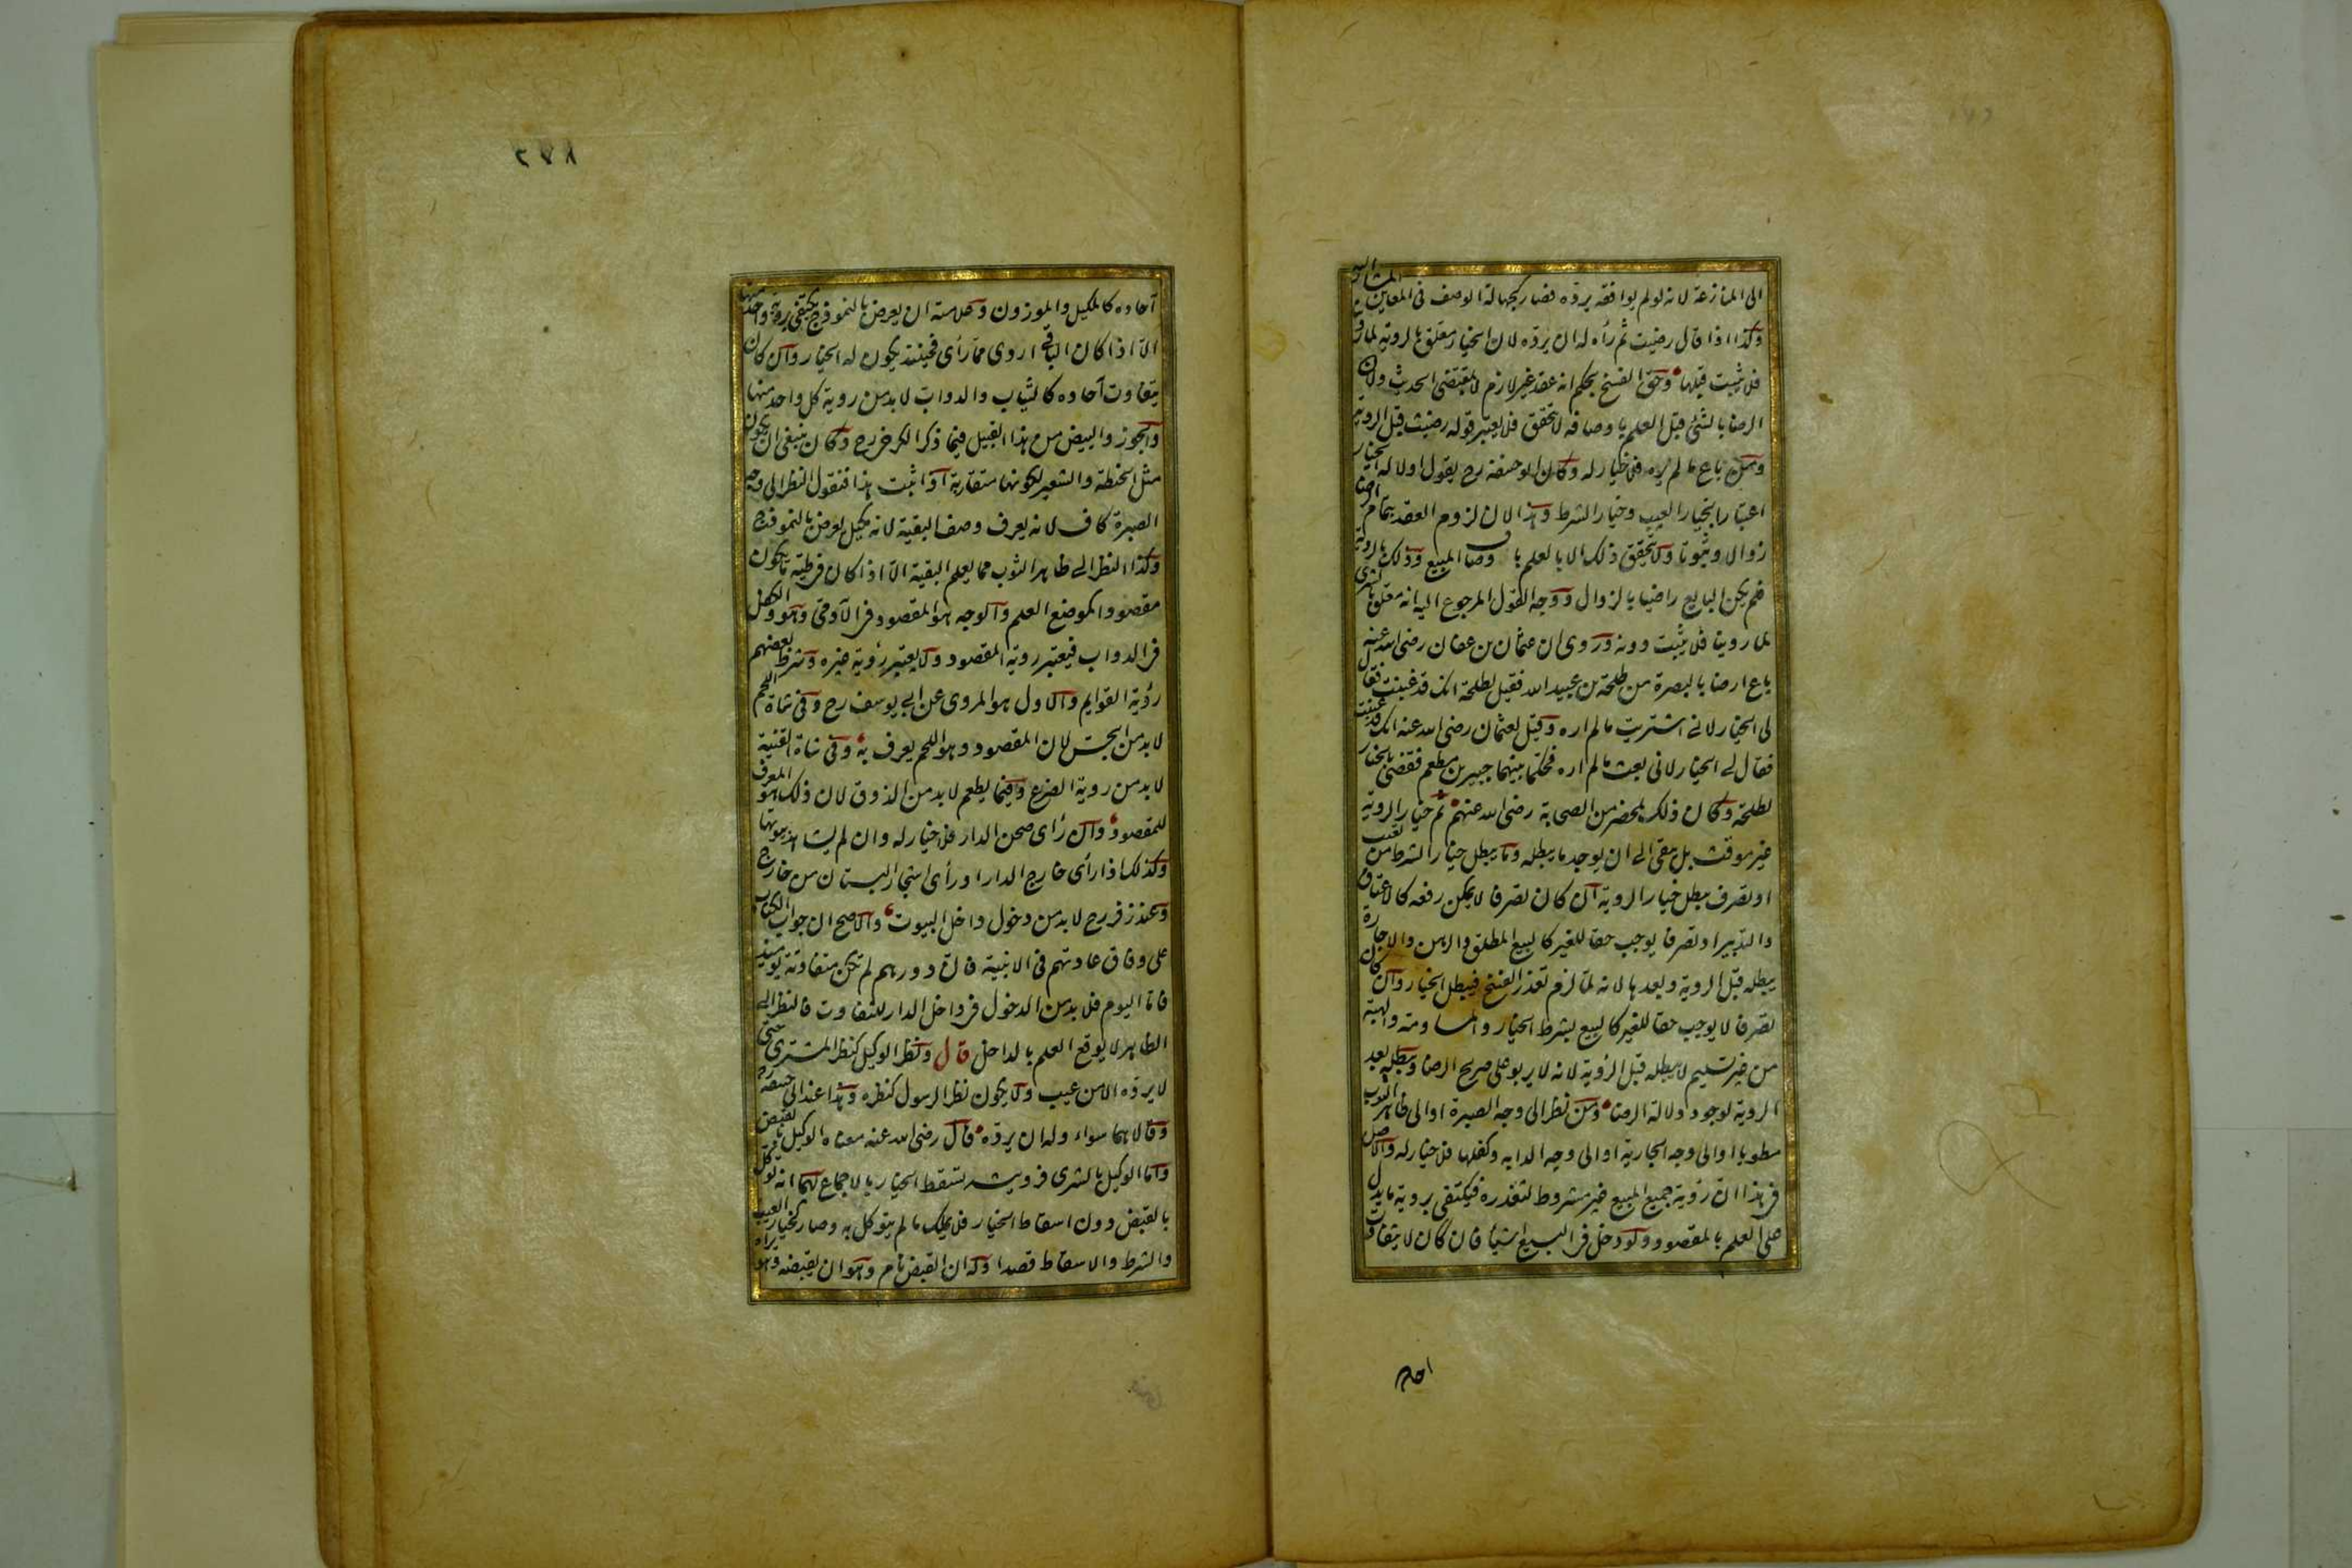 الى المنازعة لانه لو لم يوافقه يرده فصار كجهالة الوصف فى المعاين المشار اليه
وكذا اذا قال رضيت ثم رأه له ان يرده لان الخيار معلق بالروية لما روينا
فلا يثبت قبلها وحق الفسخ بحكم انه عقد غير لازم لا بمقتضى الحديث ولان
الرضا بالشئ قبل العلم باوصافه لا يتحقق فلا يعتبر قوله رضيت قبل الروية
ومن باع ما لم يره فلا خيار له وكان ابو حنيفة رح يقول اولا له الخيار
اعتبارا بخيار العيب وخيار الشرط وهذا لان لزوم العقد بتمام الرضا
زوالا وثبوتا ولا يتحقق ذلك الا بالعلم باوصاف المبيع وذلك بالروية
فلم يكن البايع راضيا بالزوال ووجه القول المرجوع اليه انه معلق بالشرى
لما روينا فلا يثبت دونه وروى ان عثمان بن عفان رضى الله عنه
باع ارضا بالبصرة من طلحة بن عبيد الله فقيل لطلحة انك قد غبنت فقال
لى الخيار لانى اشتريت ما لم اره وقيل لعثمان رضى الله عنه انك قد غبنت
فقال لى الخيار لانى بعت ما لم اره فحكما بينهما جبير بن مطعم فقضى بالخيار
لطلحة وكان ذلك بمحضر من الصحابة رضى الله عنهم ثم خيار الروية
غير موقت بل يبقى الى ان يوجد ما يبطله وما يبطل خيار الشرط من تعيب
او تصرف يبطل خيار الروية ان كان تصرفا لا يمكن رفعه كالاعتاق
والتدبير او تصرفا يوجب حقا للغير كالبيع المطلق والرهن والاجارة
يبطله قبل الروية وبعدها لانه لما لزم تعذر الفسخ فيبطل الخيار وان كان
تصرفا لا يوجب حقا للغير كالبيع بشرط الخيار والمساومة والهبة
من غير تسليم لا يبطله قبل الرؤية لانه لا يربو على صريح الرضا ويبطله بعد
الروية لوجود دلالة الرضا ومن نظر الى وجه الصبرة او الى ظاهر الثوب
مطويا او الى وجه الجارية او الى وجه الدابه وكفلها فلا خيار له والاصل
فى هذا ان رؤية جميع المبيع غير مشروط لتعذره فيكتفى بروية ما يدل
على العلم بالمقصود ولو دخل فى البيع اشيأ فان كان لا يتفاوت
احاد
٢٧٨
آحاده كالمكيل والموزون وعلامته ان يعرض بالنموذج يكتفى بروية واحد منها
الا اذا كان الباقى اردى مما رأى فحينئذ يكون له الخيار وان كان
يتفاوت آحاده كالثياب والدواب لا بد من روية كل واحد منها
والجوز والبيض من هذا القبيل فيما ذكر الكرخى رح وكان ينبغى ان يكون
مثل الحنطة والشعير لكونها متقاربة اذا ثبت هذا فنقول النظر الى وجه
الصبرة كاف لانه يعرف وصف البقية لانه مكيل يعرض بالنموذج
وكذا النظر الى ظاهر الثوب مما يعلم البقية الا اذا كان فى طيه ما يكون
مقصودا كموضع العلم والوجه هو المقصود فى الآدمى وهو والكفل
فى الدواب فيعتبر روية المقصود ولا يعتبر رؤية غيره وشرط بعضهم
رؤية القوايم والاول هو المروى عن ابى يوسف رح وفى شاة اللحم
لا بد من الجس لان المقصود وهو اللحم يعرف به وفى شاة القنية
لا بد من روية الضرع وفيما يطعم لا بد من الذوق لان ذلك هو المعرف
للمقصود وان رأى صحن الدار فلا خيار له وان لم يشاهد بيوتها
وكذلك اذا رأى خارج الدار او رأى اشجار البستان من خارج
وعند زفر رح لا بد من دخول داخل البيوت والاصح ان جواب الكتاب
على وفاق عادتهم فى الابنية فان دورهم لم تكن متفاوتة يومئذ
فاما اليوم فلا بد من الدخول فى داخل الدار للتفاوت فالنظر الى
الظاهر لا يوقع العلم بالداخل قال ونظر الوكيل كنظر المشترى حتى
لا يرده الا من عيب ولا يكون نظر الرسول كنظره وهذا عند ابى حنيفة رح
وقالا هما سواء وله ان يرده قال رضى الله عنه معناه الوكيل بالقبض
واما الوكيل بالشرى فرويته تسقط الخيار بالاجماع لهما انه توكل
بالقبض دون اسقاط الخيار فلا يملك ما لم يتوكل به وصار كخيار العيب
والشرط والاسقاط قصدا وله ان القبض تام وهو ان يقبضه وهو يراه